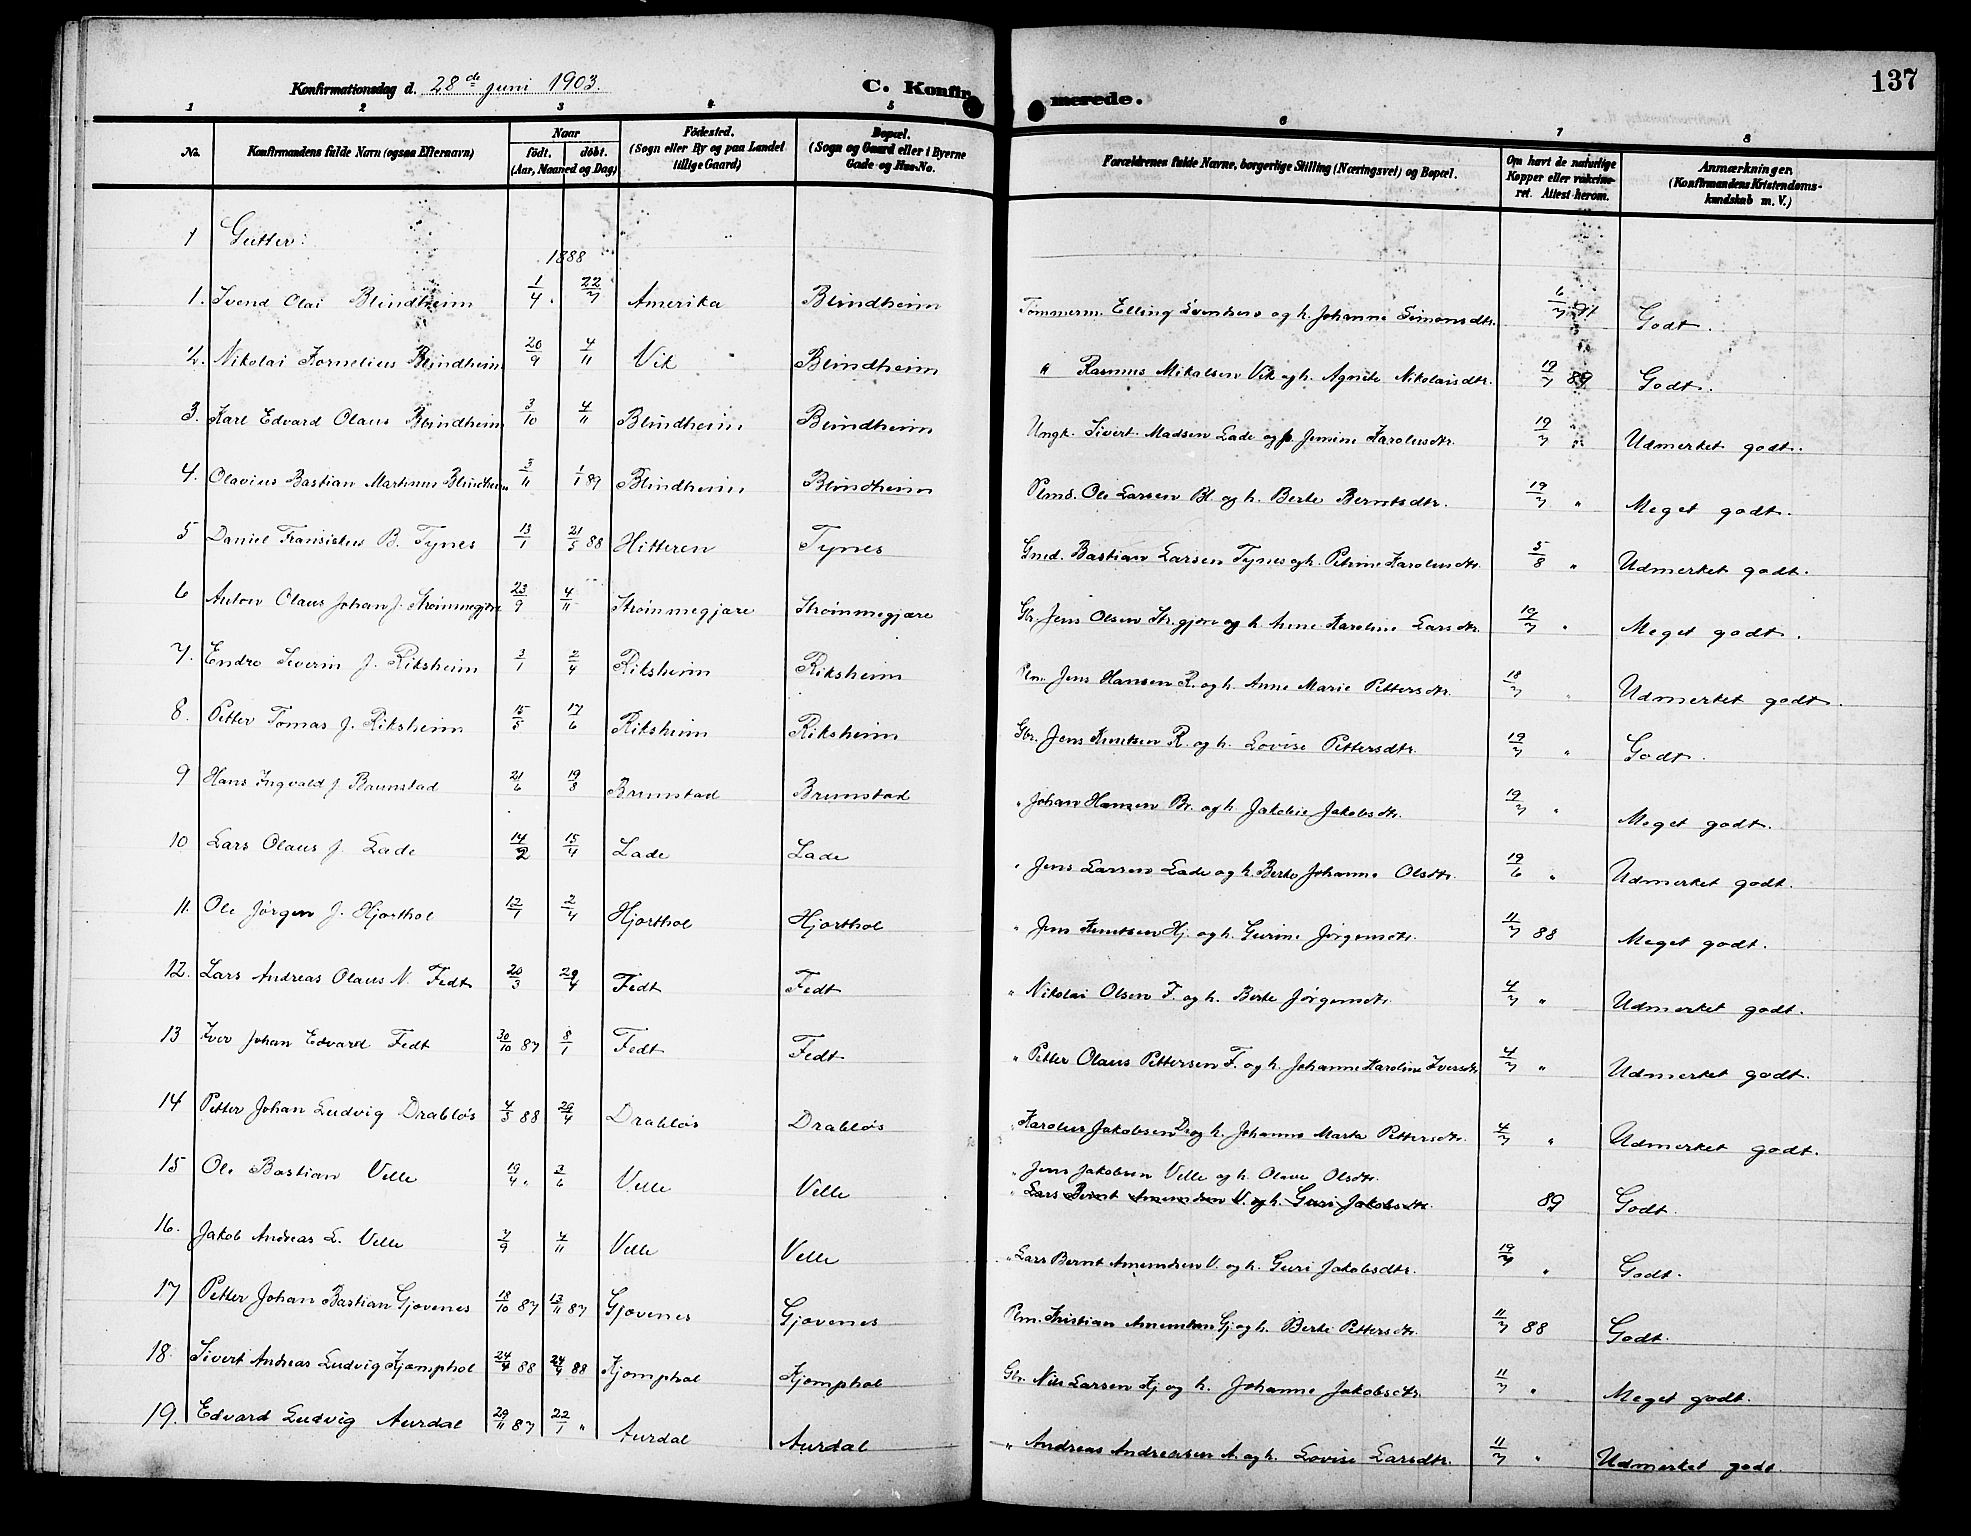 137
Konfirmationsdag d. 28de juni 1903.
C. Konfirmerede.
1 2 3 4 5 6 7 8
No. Konfirmandens fulde Navn (ogsaa Efternavn) Naar født. døbt. (Aar, Maaned og Dag) Fødested. (Sogn eller By og paa Landet tillige Gaard) Bopæl. (Sogn og Gaard eller i Byerne Gade og Hus-No. Forældrenes fulde Navne, borgerlige Stilling (Næringsvei) og Bopæl. Om havt de naturlige Kopper eller vakcineret. Attest herom. Anmærkninger. (Konfirmandens Kristendomskundskab m. V.)
1 Gutter:
1888
1. Svend Olai Blindheim 1/4 " 22/7 Amerika Blindheim Tømmerm. Elling Svendsen og h. Johanne Simonsdtr. 6/7 91 Godt.
2. Nikolai Kornelius Blindheim 20/9 4/11 Vik Blindheim " Rasmus Mikalsen Vik og h. Agnete Nikolaisdtr. 19/7 89 Godt.
3. Karl Edvard Olaus Blindheim 3/10 4/11 Blindheim Blindheim Ungk. Sivert Madsen Lade og p. Jemine Karolusdtr. 19/7 " Udmerket godt.
4. Olavius Bastian Martinus Blindheim 3/11 1/1 89 Blindheim Blindheim Plms. Ole Larsen Bl. og h. Berte Berntsdtr. 19/7 " Meget godt.
5 Daniel Fransiskus B. Tynes 13/1 21/5 88 Hitteren Tynes Gmd. Bastian Larsen Tynes og h. Petrine Karolusdtr. 5/8 " Udmerket godt.
6 Anton Olaus Johan J. Strømmegjære 23/9 4/11 Strømmegjære Strømmegjære Gbr. Jens Olsen Str.gjære og h. Anne Karoline Larsdtr. 19/7 " Meget godt.
7. Endre Severin J. Riksheim 3/1 2/4 Riksheim Riksheim Plm. Jens Hansen R. og h. Anne Marie Pettersdtr. 18/7 " Udmerket godt.
8. Petter Tomas J. Riksheim 15/5 17/6 Riksheim Riksheim Gbr. Jens Knutsen R. og h. Lovise Pettersdtr. 19/7 " Godt.
9 Hans Ingvald J. Brunstad 21/6 19/8 Brunstad Brunstad " Johan Hansen Br. og h. Jakobie Jakobsdtr. 19/7 " Meget godt.
10 Lars Olaus J. Lade 14/2 15/4 Lade Lade " Jens Larsen Lade og h. Berte Johanne Olsdtr. 19/6 " Udmerket godt.
11. Ole Jørgen J. Hjorthol 12/1 2/4 Hjorthol Hjorthol " Jens Knutsen Hj. og h. Gurine Jørgensdtr. 11/7 88 Meget godt.
12. Lars Andreas Olaus N. Fedt 20/3 29/4 Fedt Fedt " Nikolai Olsen F. og h. Berte Jørgensdtr. 4/7 " Udmerket godt.
13 Iver Johan Edvard Fedt 30/10 87 8/1 Fedt Fedt " Petter Olaus Pettersen F. og h. Johanne Karoline Iversdtr. 4/7 " Udmerket godt.
14 Petter Johan Ludvig Drabløs 4/3 88 29/4 Drabløs Drabløs " Karolus Jakobsen D. og h. Johanne Marta Pettersdtr. 4/7 " Udmerket godt.
15 Ole Bastian Velle 19/4 " 3/6 Velle Velle " Jens Jakobsen Velle og h. Olave Olsdtr.
" Lars Bernt Amundsen V. og h. Guri Jakobsdtr. 89 Godt.
16. Jakob Andreas L. Velle 7/9 4/11 Velle Velle " Lars Bernt Amundsen V. og h. Guri Jakobsdtr. 19/7 " Godt.
17 Petter Johan Bastian Gjøvenes 18/10 87 13/11 87 Gjøvenes Gjøvenes Plm. Kristian Amundsen Gj. og h. Berte Pettersdtr. 11/7 88 Godt.
18. Sivert Andreas Ludvig Kjømphol 24/4 88 88 Kjømphol Kjømphol Gbr. Nils Larsen Kj. og h. Johanne Jakobsdtr. 11/7 " Meget godt.
19. Edvard Ludvig Aurdal 29/11 87 22/1 " Aurdal Aurdal " Andreas Andreassen A. og h. Lovise Larsdtr. 11/7 " Udmerket godt.